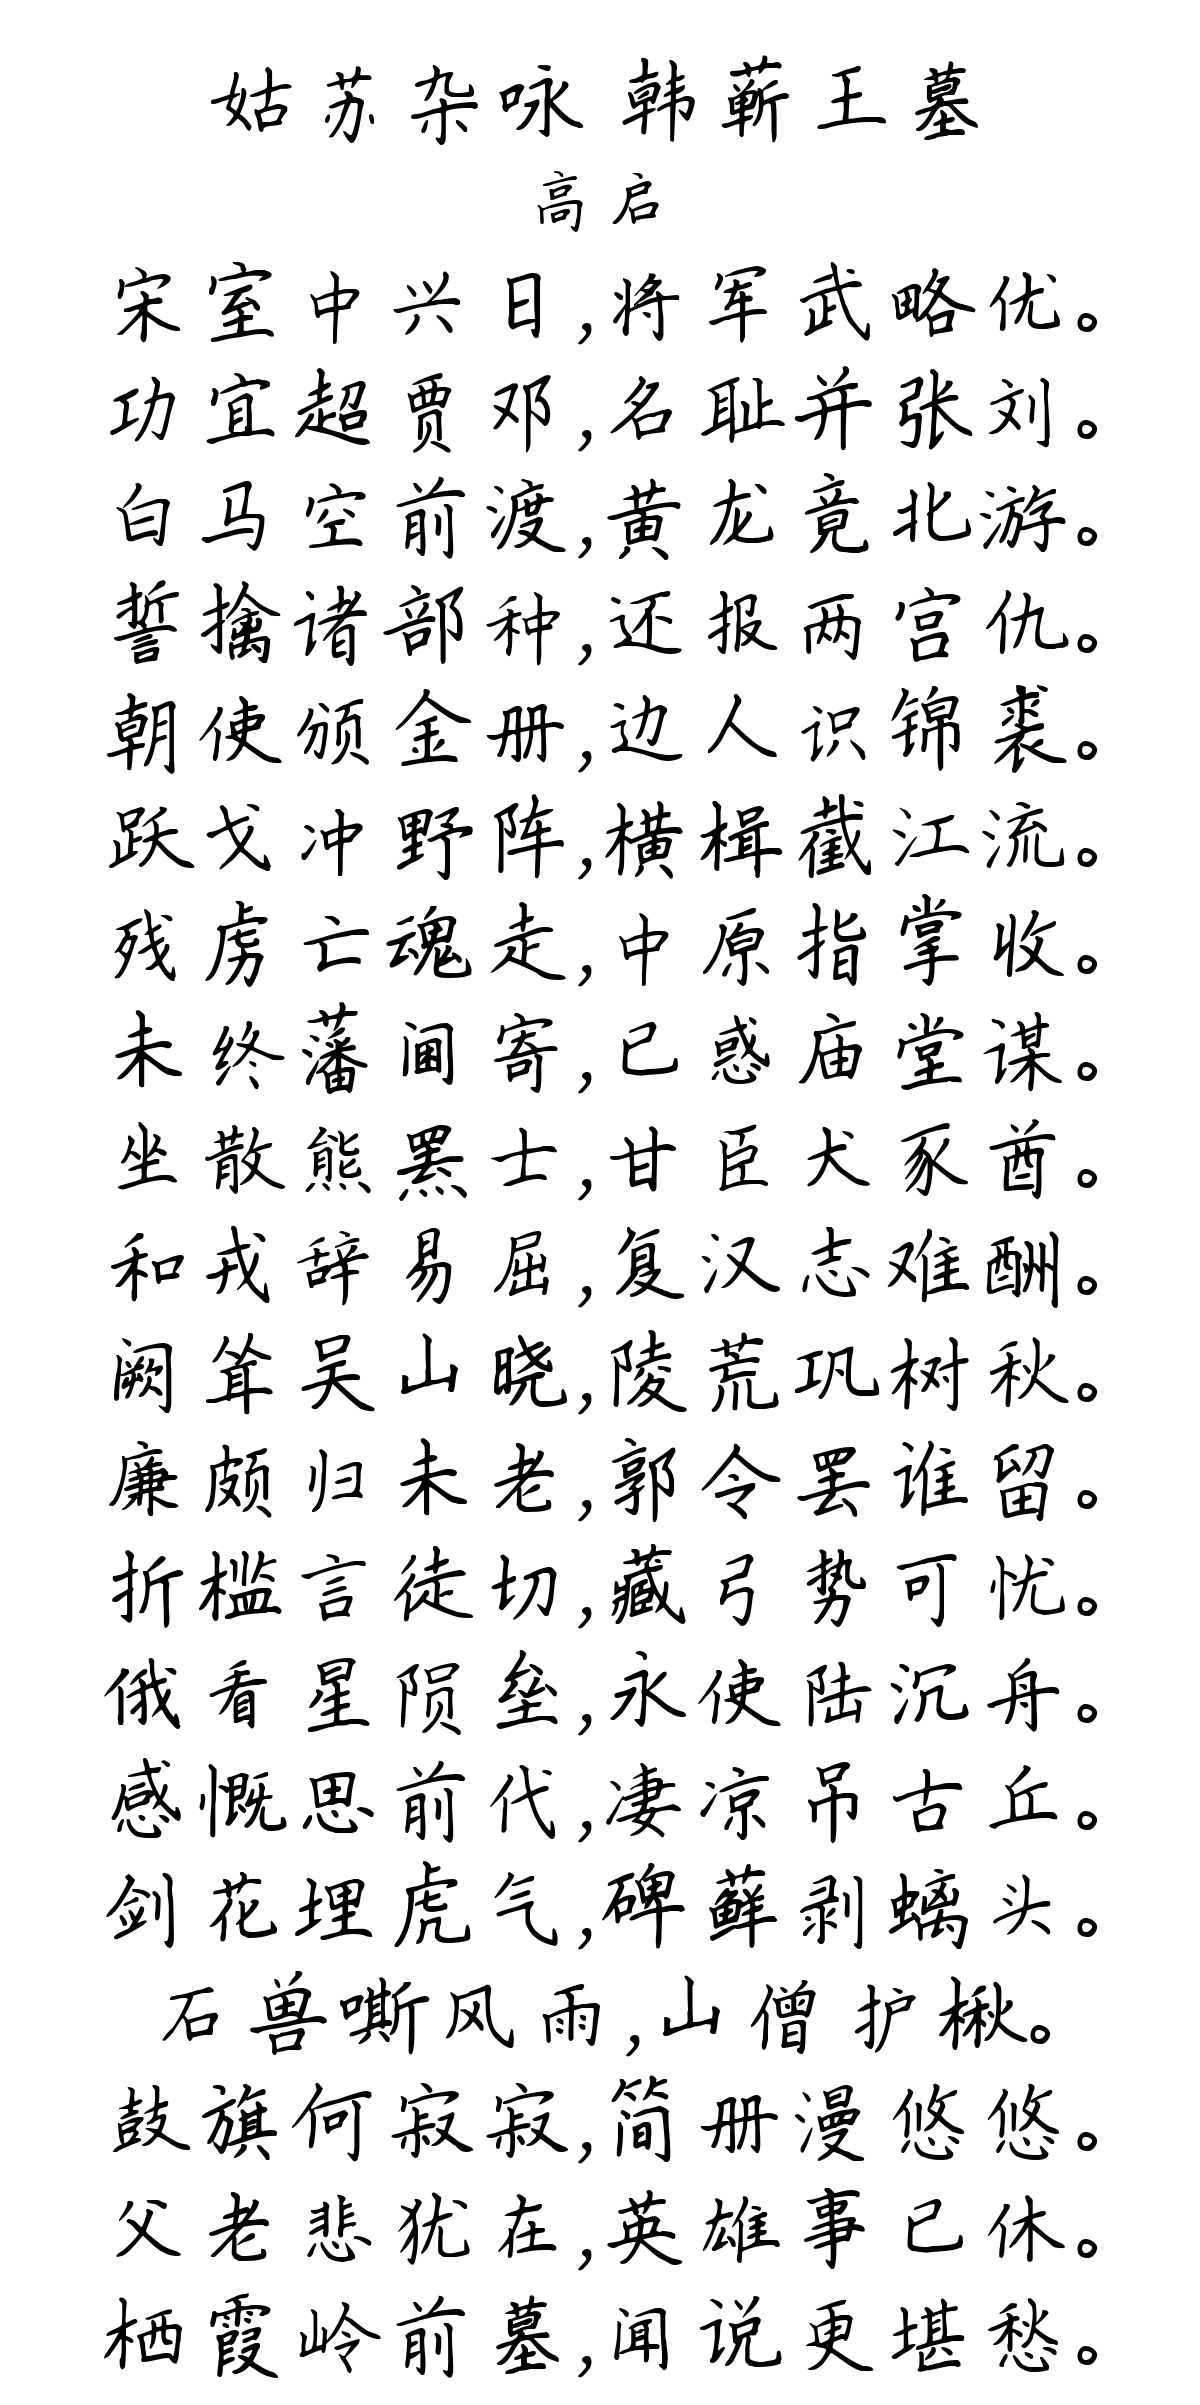 姑苏杂咏 韩蕲王墓
高启
宋室中兴日,将军武略优。
功宜超贾邓,名耻并张刘。
白马空前渡,黄龙竟北游。
誓擒诸部种,还报两宫仇。
朝使颁金册,边人识锦裘。
跃戈冲野阵,横楫截江流。
残虏亡魂走,中原指掌收。
未终藩阃寄,已惑庙堂谋。
坐散熊罴士,甘臣犬豕酋。
和戎辞易屈,复汉志难酬。
阙耸吴山晓,陵荒巩树秋。
廉颇归未老,郭令罢谁留。
折槛言徒切,藏弓势可忧。
俄看星陨垒,永使陆沉舟。
感慨思前代,凄凉吊古丘。
剑花埋虎气,碑藓剥螭头。
石兽嘶风雨,山僧护楸。
鼓旗何寂寂,简册漫悠悠。
父老悲犹在,英雄事已休。
栖霞岭前墓,闻说更堪愁。